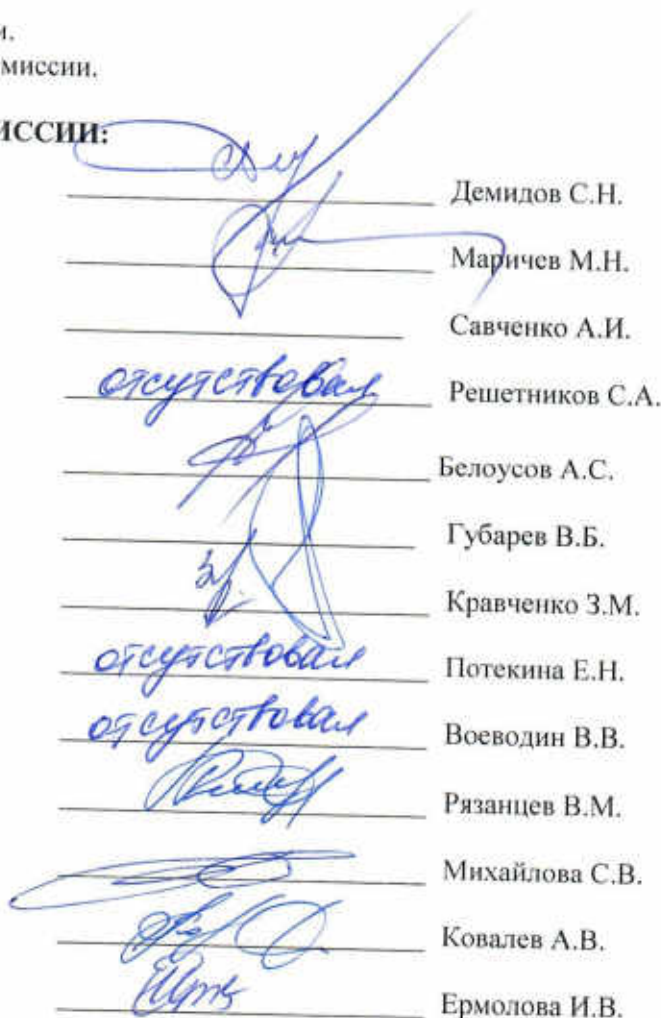 и.
миссии.
ИССИИ:
Демидов С.Н.
Маричев М.Н.
Савченко А.И.
отсутствовал Решетников С.А.
Белоусов А.С.
Губарев В.Б.
Кравченко З.М.
отсутствовал Потекина Е.Н.
отсутствовал Воеводин В.В.
Рязанцев В.М.
Михайлова С.В.
Ковалев А.В.
Ермолова И.В.